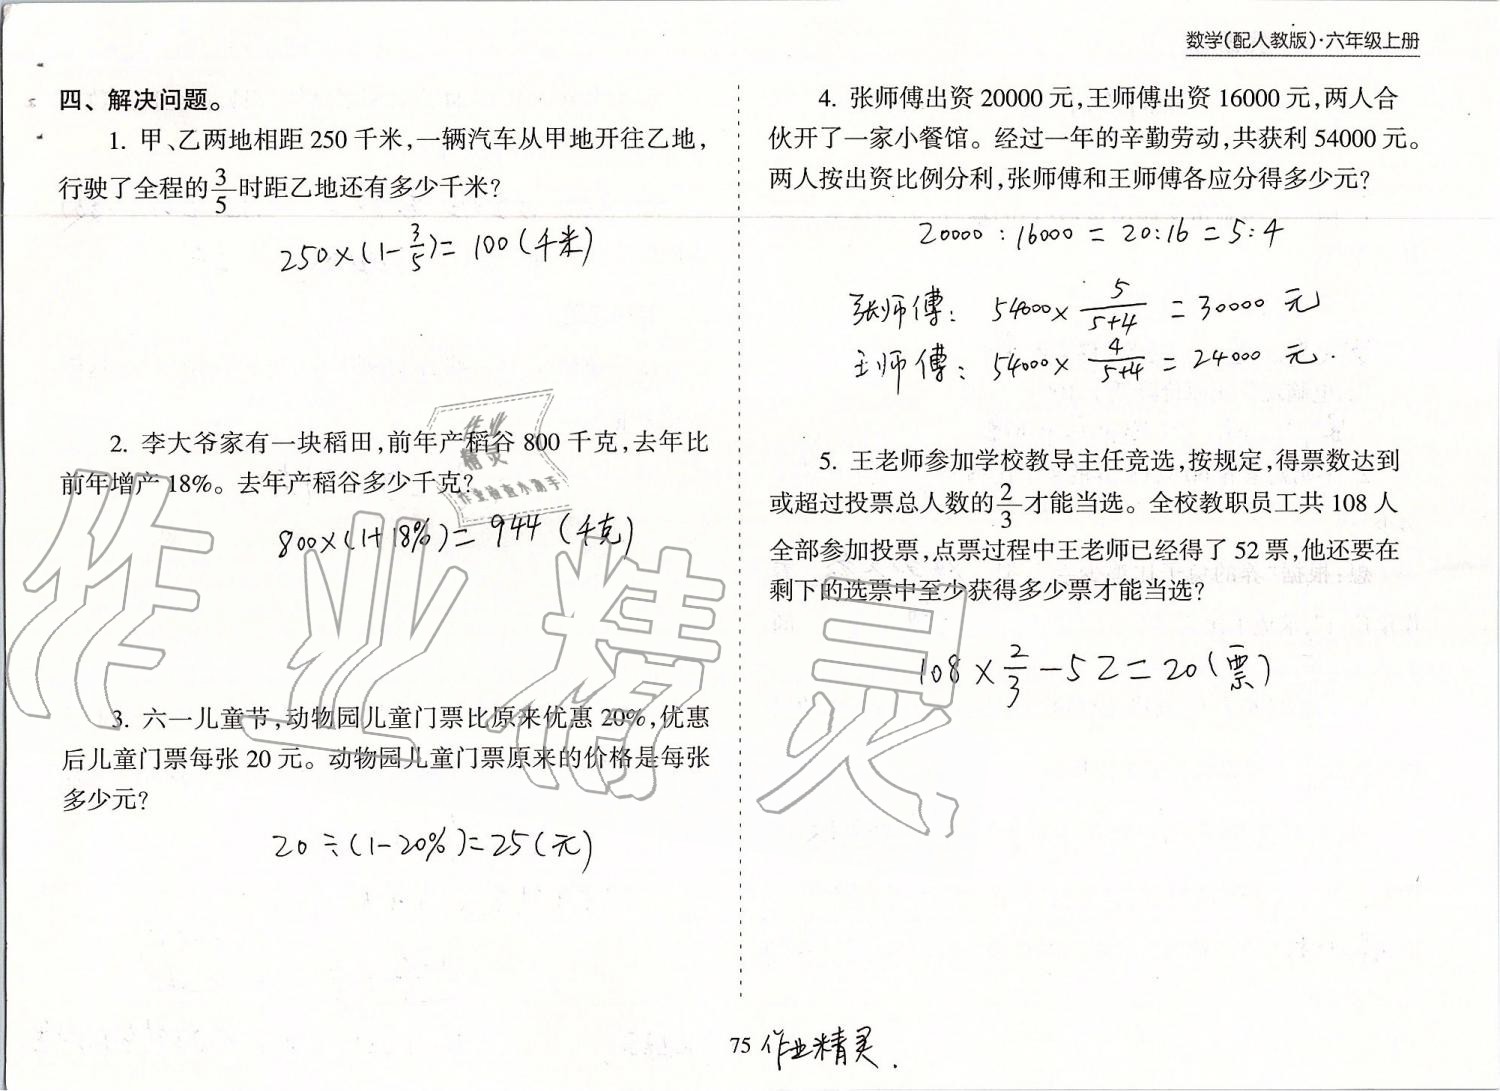 数学(配人教版)·六年级上册
四、解决问题。
1. 甲、乙两地相距 250 千米,一辆汽车从甲地开往乙地,
行驶了全程的3/5时距乙地还有多少千米?
250×(1-3/5)=100(千米)
2. 李大爷家有一块稻田,前年产稻谷 800 千克,去年比
前年增产 18%。去年产稻谷多少千克?
800×(1+18%)=944(千克)
3. 六一儿童节,动物园儿童门票比原来优惠 20%,优惠
后儿童门票每张 20 元。动物园儿童门票原来的价格是每张
多少元?
20÷(1-20%)=25(元)
4. 张师傅出资 20000 元,王师傅出资 16000 元,两人合
伙开了一家小餐馆。经过一年的辛勤劳动,共获利 54000 元。
两人按出资比例分利,张师傅和王师傅各应分得多少元?
20000:16000=20:16=5:4
张师傅: 54000×5/(5+4)=30000 元
王师傅: 54000×4/(5+4)=24000 元.
5. 王老师参加学校教导主任竞选,按规定,得票数达到
或超过投票总人数的2/3才能当选。全校教职员工共 108 人
全部参加投票,点票过程中王老师已经得了 52 票,他还要在
剩下的选票中至少获得多少票才能当选?
108×2/3-52=20(票)
作业
精灵
作业检查小助手
作业精灵
75 作业精灵.